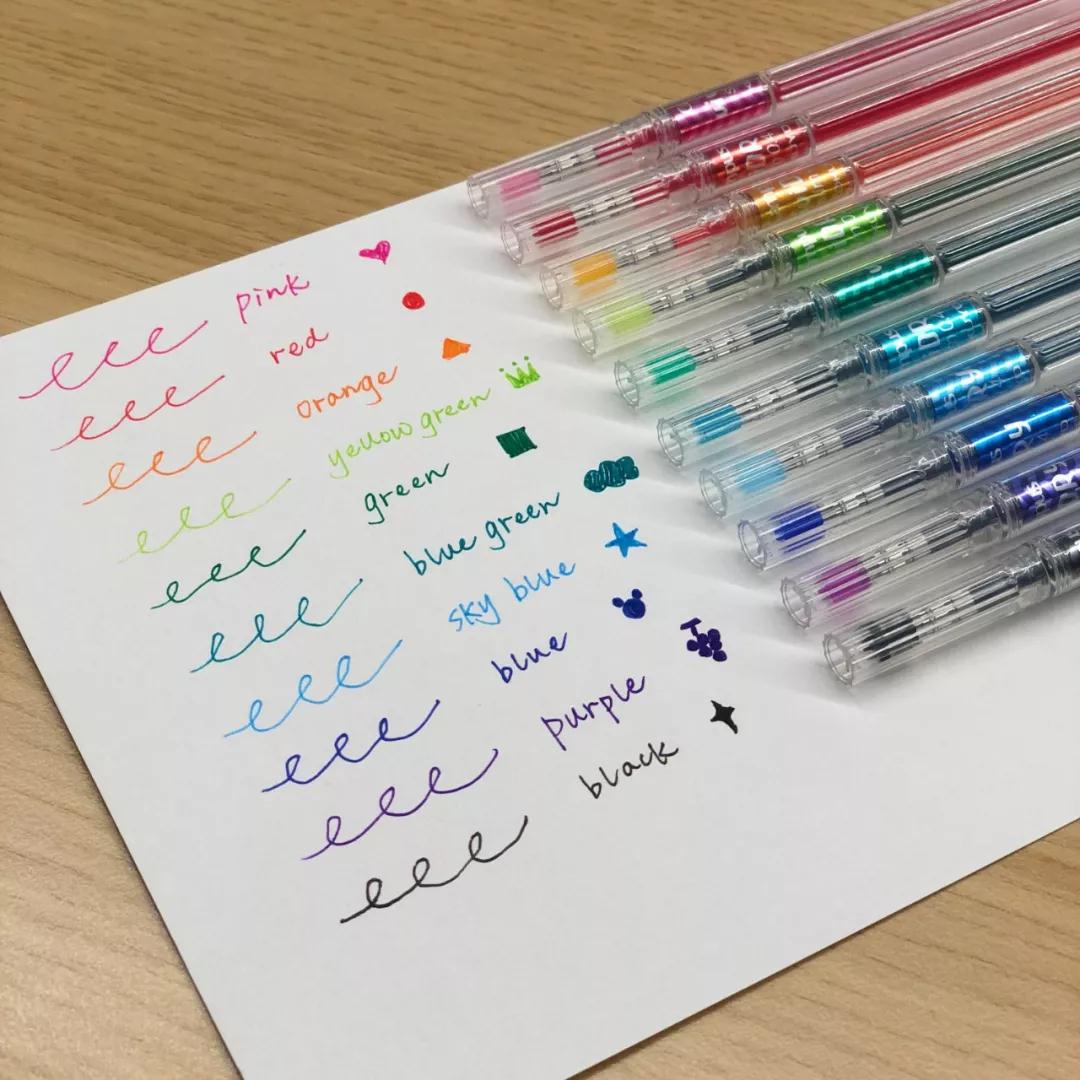 pink
red
orange
yellow green
green
blue green
sky blue
blue
purple
black